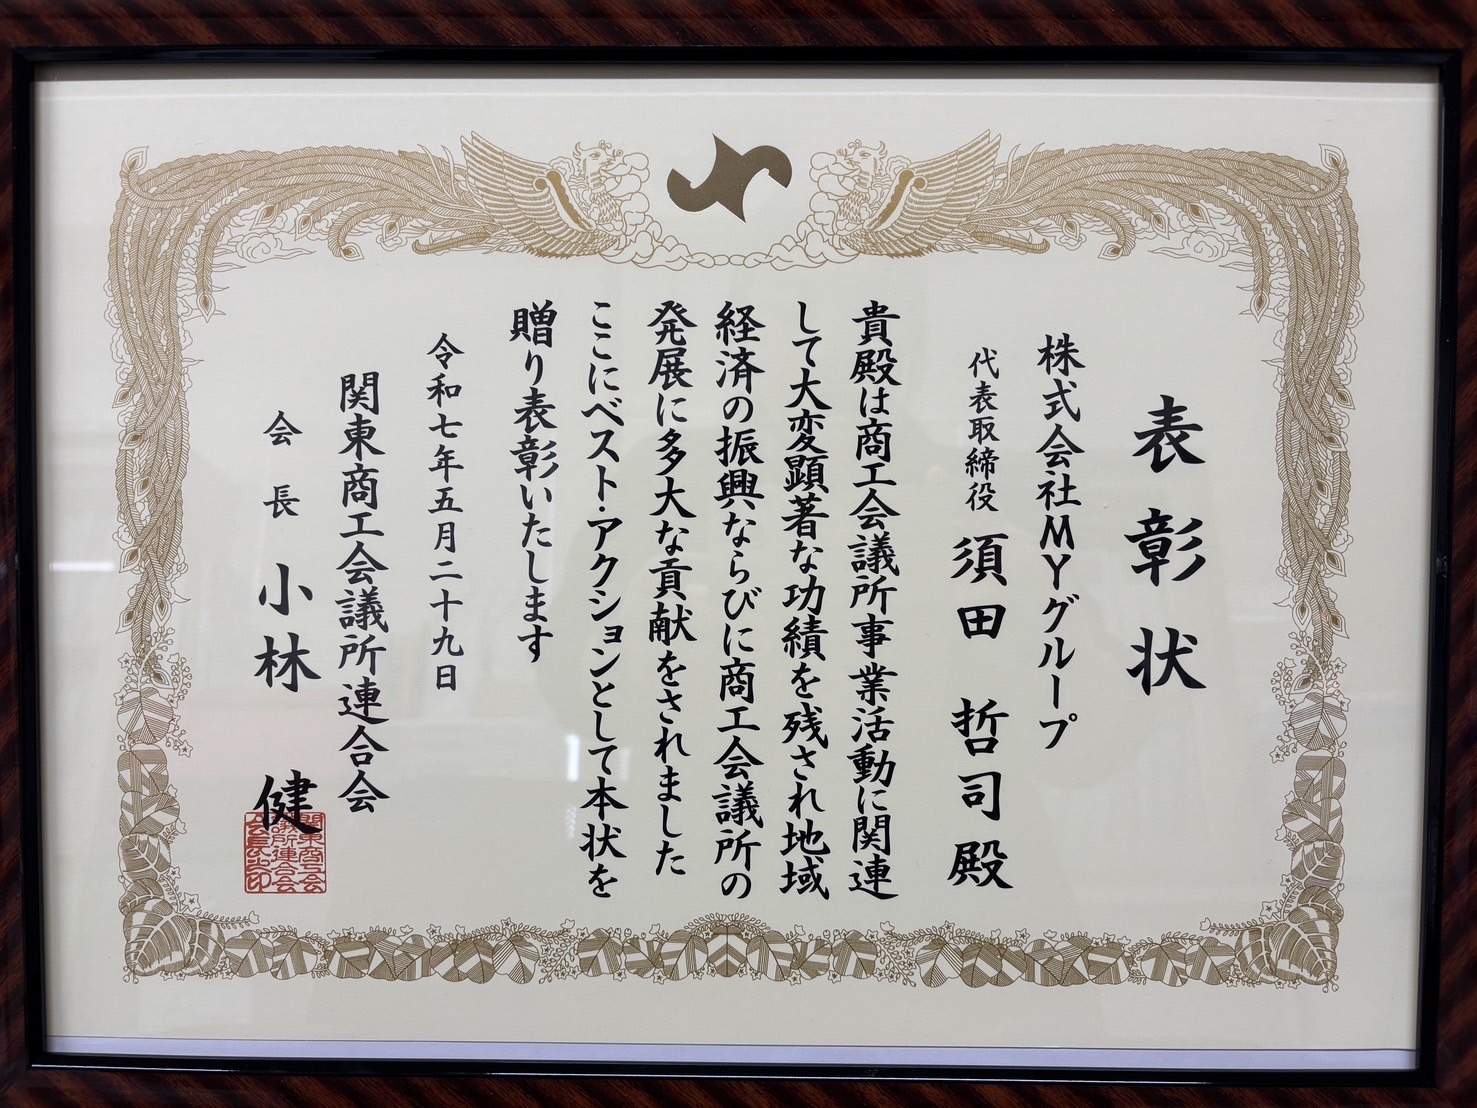 表彰状
株式会社MYグループ
代表取締役 須田 哲司 殿
貴殿は商工会議所事業活動に関連
して大変顕著な功績を残され地域
経済の振興ならびに商工会議所の
発展に多大な貢献をされました
ここにベスト・アクションとして本状を
贈り表彰いたします
令和七年五月二十九日
関東商工会議所連合会
会長 小林 健
関東商工会
議所連合会
会長之印